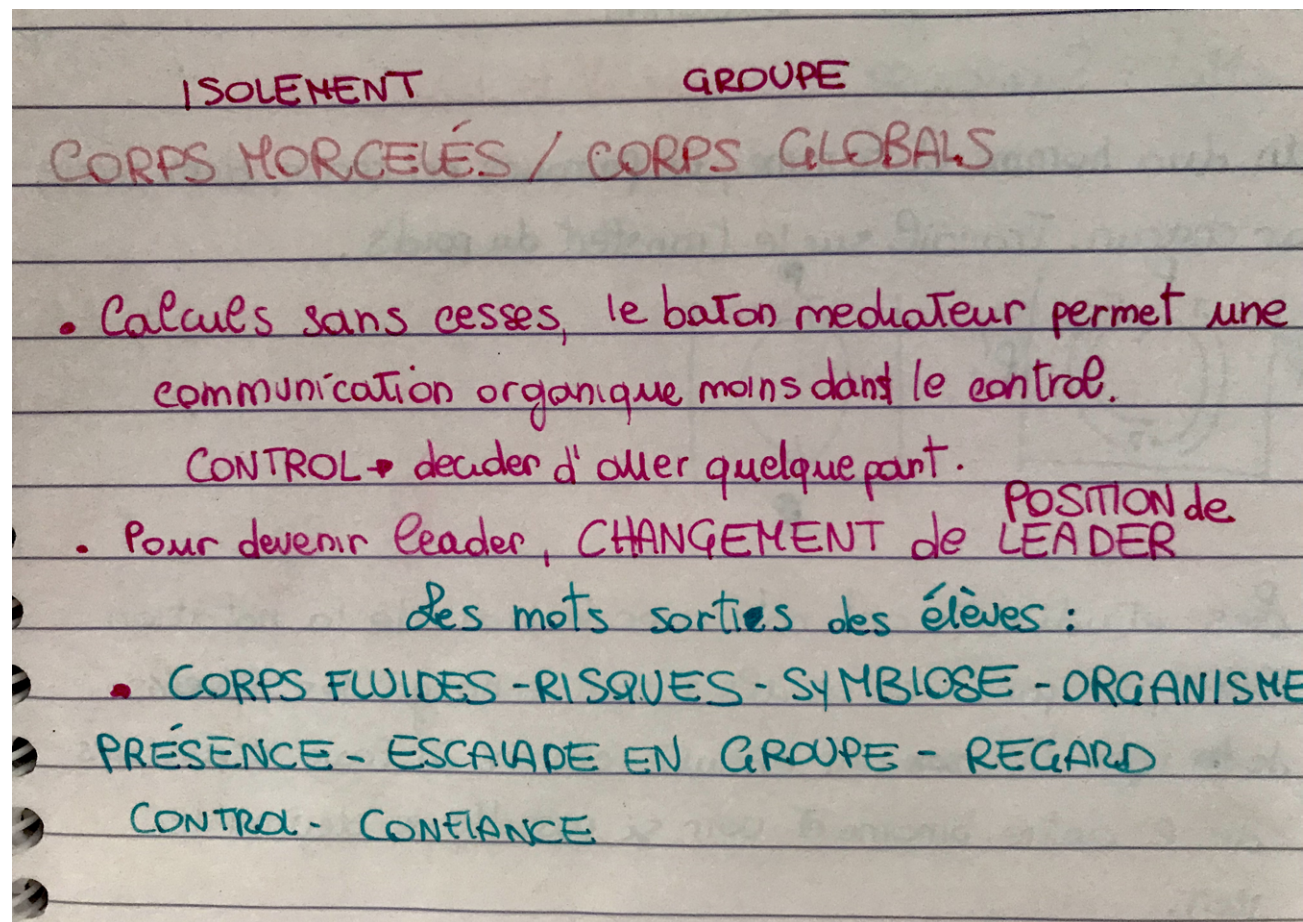 ISOLEMENT GROUPE
CORPS MORCELÉS / CORPS GLOBALS
• Calculs sans cesses, le baton mediateur permet une
communication organique moins dans le control.
CONTROL → decider d'aller quelque part.
• Pour devenir leader, CHANGEMENT de POSITION de
LEADER
Les mots sorties des élèves :
• CORPS FLUIDES - RISQUES - SYMBIOSE - ORGANISME
PRÉSENCE - ESCALADE EN GROUPE - REGARD
CONTROL - CONFIANCE